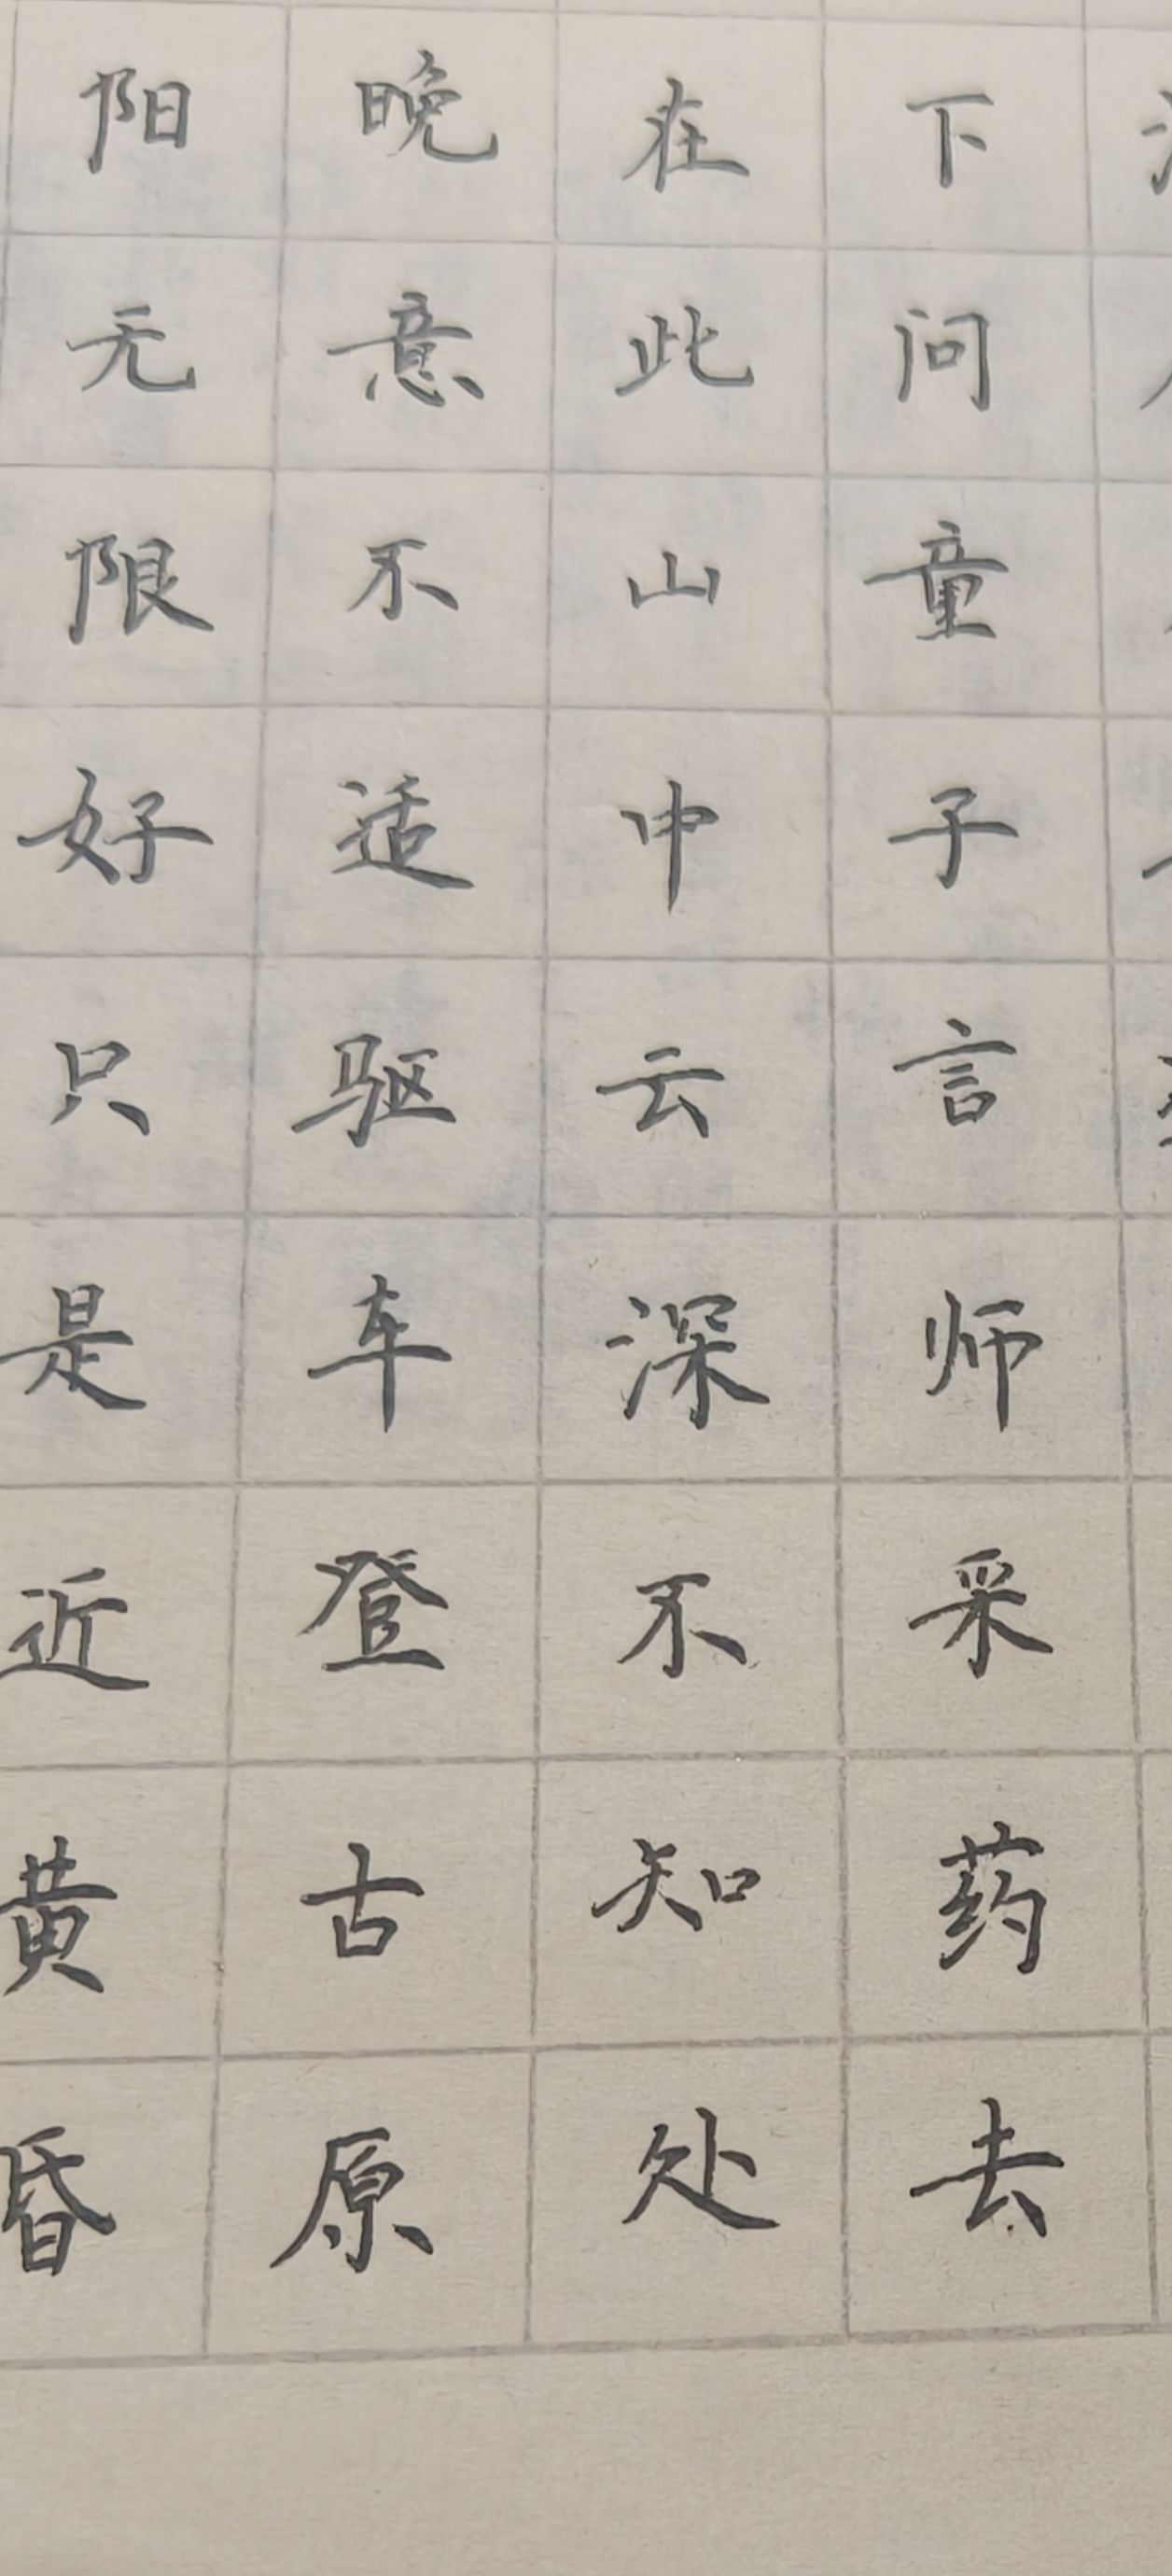 下问童子言师采药去
在此山中云深不知处
晚意不适驱车登古原
阳无限好只是近黄昏